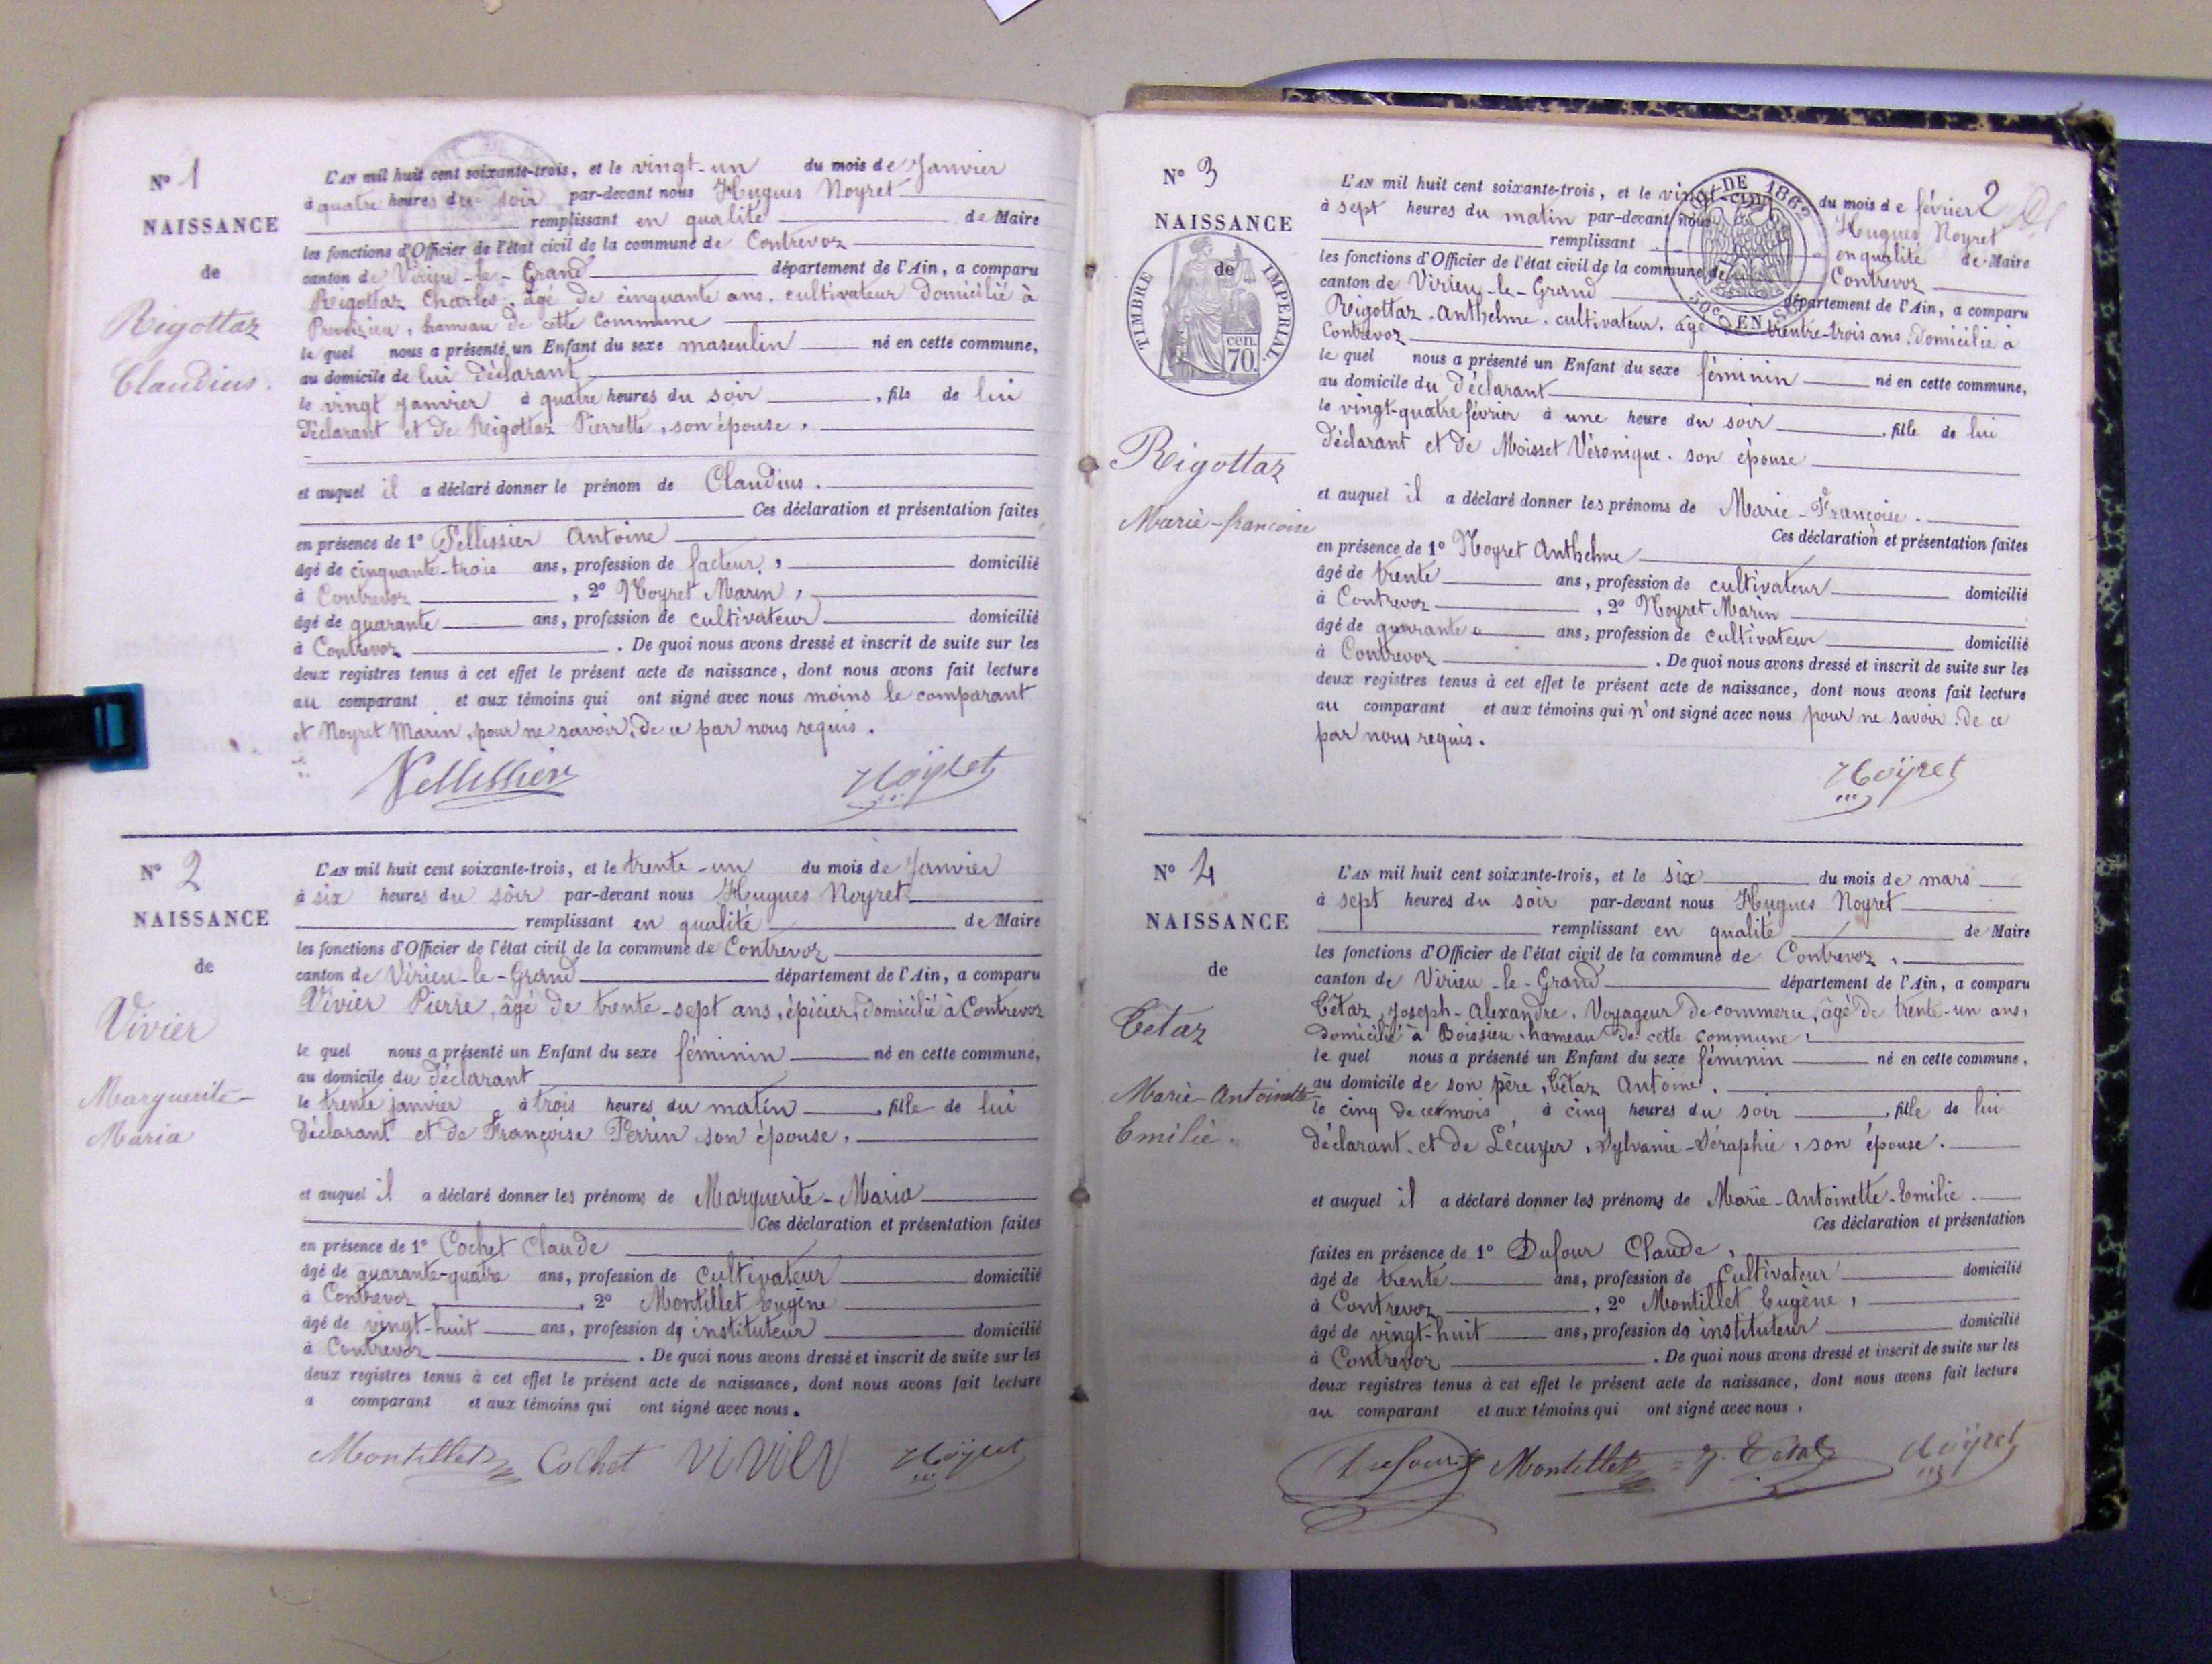 N° 1
NAISSANCE
de
Rigottaz
Claudius.
L'AN mil huit cent soixante-trois, et le vingt-un du mois de Janvier
à quatre heures du soir par-devant nous Hugues Noyret
remplissant en qualité de Maire
les fonctions d'Officier de l'état civil de la commune de Contrevoz
canton de Virieu-le-Grand département de l'Ain, a comparu
Rigottaz Charles, âgé de cinquante ans, cultivateur domicilié à
hameau de cette commune
le quel nous a présenté un Enfant du sexe masculin né en cette commune,
au domicile de lui déclarant
le vingt janvier à quatre heures du soir, fils de lui
déclarant et de Rigottaz Pierrette, son épouse,
et auquel il a déclaré donner le prénom de Claudius.
Ces déclaration et présentation faites
en présence de 1° Pellissier Antoine
âgé de cinquante-trois ans, profession de facteur, domicilié
à Contrevoz, 2° Noyret Marin,
âgé de quarante ans, profession de cultivateur domicilié
à Contrevoz. De quoi nous avons dressé et inscrit de suite sur les
deux registres tenus à cet effet le présent acte de naissance, dont nous avons fait lecture
au comparant et aux témoins qui ont signé avec nous moins le comparant
et Noyret Marin, pour ne savoir, de ce par nous requis.
Pellissier Noÿret
N° 2
NAISSANCE
de
Vivier
Marguerite-
Maria
L'AN mil huit cent soixante-trois, et le trente-un du mois de Janvier
à six heures du soir par-devant nous Hugues Noyret
remplissant en qualité de Maire
les fonctions d'Officier de l'état civil de la commune de Contrevoz
canton de Virieu-le-Grand département de l'Ain, a comparu
Vivier Pierre, âgé de trente-sept ans, épicier, domicilié à Contrevoz
le quel nous a présenté un Enfant du sexe féminin né en cette commune,
au domicile du déclarant
le trente janvier à trois heures du matin, fille de lui
déclarant et de Françoise Perrin son épouse,
et auquel il a déclaré donner les prénoms de Marguerite-Maria
Ces déclaration et présentation faites
en présence de 1° Cochet Claude
âgé de quarante-quatre ans, profession de cultivateur domicilié
à Contrevoz, 2° Montillet Eugène
âgé de vingt-huit ans, profession de instituteur domicilié
à Contrevoz. De quoi nous avons dressé et inscrit de suite sur les
deux registres tenus à cet effet le présent acte de naissance, dont nous avons fait lecture
a comparant et aux témoins qui ont signé avec nous.
Montillet Cochet Vivier Noÿret
N° 3
NAISSANCE
de
TIMBRE IMPERIAL
cen.
70.
Rigottaz
Marie-francoise
2
DE 1862
50c EN SUS
L'AN mil huit cent soixante-trois, et le vingt-cinq du mois de février
à sept heures du matin par-devant nous Hugues Noyret
remplissant en qualité de Maire
les fonctions d'Officier de l'état civil de la commune de Contrevoz
canton de Virieu-le-Grand département de l'Ain, a comparu
Rigottaz Anthelme, cultivateur, âgé de trente-trois ans, domicilié à
Contrevoz
le quel nous a présenté un Enfant du sexe féminin né en cette commune,
au domicile du déclarant
le vingt-quatre février à une heure du soir, fille de lui
déclarant et de Moisset Véronique, son épouse
et auquel il a déclaré donner les prénoms de Marie-Françoise.
Ces déclaration et présentation faites
en présence de 1° Noyret Anthelme
âgé de trente ans, profession de cultivateur domicilié
à Contrevoz, 2° Noyret Marin
âgé de quarante ans, profession de cultivateur domicilié
à Contrevoz. De quoi nous avons dressé et inscrit de suite sur les
deux registres tenus à cet effet le présent acte de naissance, dont nous avons fait lecture
au comparant et aux témoins qui n'ont signé avec nous pour ne savoir. de ce
par nous requis.
Noÿret
N° 4
NAISSANCE
de
Cétaz
Marie-Antoinette-
Emilie.
L'AN mil huit cent soixante-trois, et le six du mois de mars
à sept heures du soir par-devant nous Hugues Noyret
remplissant en qualité de Maire
les fonctions d'Officier de l'état civil de la commune de Contrevoz,
canton de Virieu-le-Grand département de l'Ain, a comparu
Cétaz, Joseph-Alexandre, Voyageur de commerce, âgé de trente-un ans,
domicilié à Boissieu, hameau de cette commune,
le quel nous a présenté un Enfant du sexe féminin né en cette commune,
au domicile de son père, Cétaz Antoine,
le cinq de ce mois à cinq heures du soir, fille de lui
déclarant, et de Lécuyer, Sylvanie-Séraphie, son épouse.
et auquel il a déclaré donner les prénoms de Marie-Antoinette-Emilie.
Ces déclaration et présentation
faites en présence de 1° Dufour Claude,
âgé de trente ans, profession de cultivateur domicilié
à Contrevoz, 2° Montillet Eugène,
âgé de vingt-huit ans, profession de instituteur domicilié
à Contrevoz. De quoi nous avons dressé et inscrit de suite sur les
deux registres tenus à cet effet le présent acte de naissance, dont nous avons fait lecture
au comparant et aux témoins qui ont signé avec nous,
Dufour Montillet J. Cétaz Noÿret